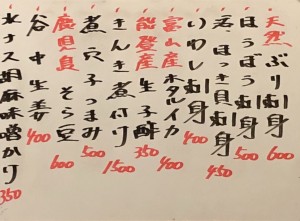 天然ぶり刺身 600
ほうぼう刺身 500
活ほっき貝刺身 450
いわし刺身 400
富山産ホタルイカ 400
能登産生子酢 350
きんき煮付け 1500
煮穴子つまみ 500
鹿児島そら豆 600
谷中生姜 400
水ナス胡麻味噌かけ 350